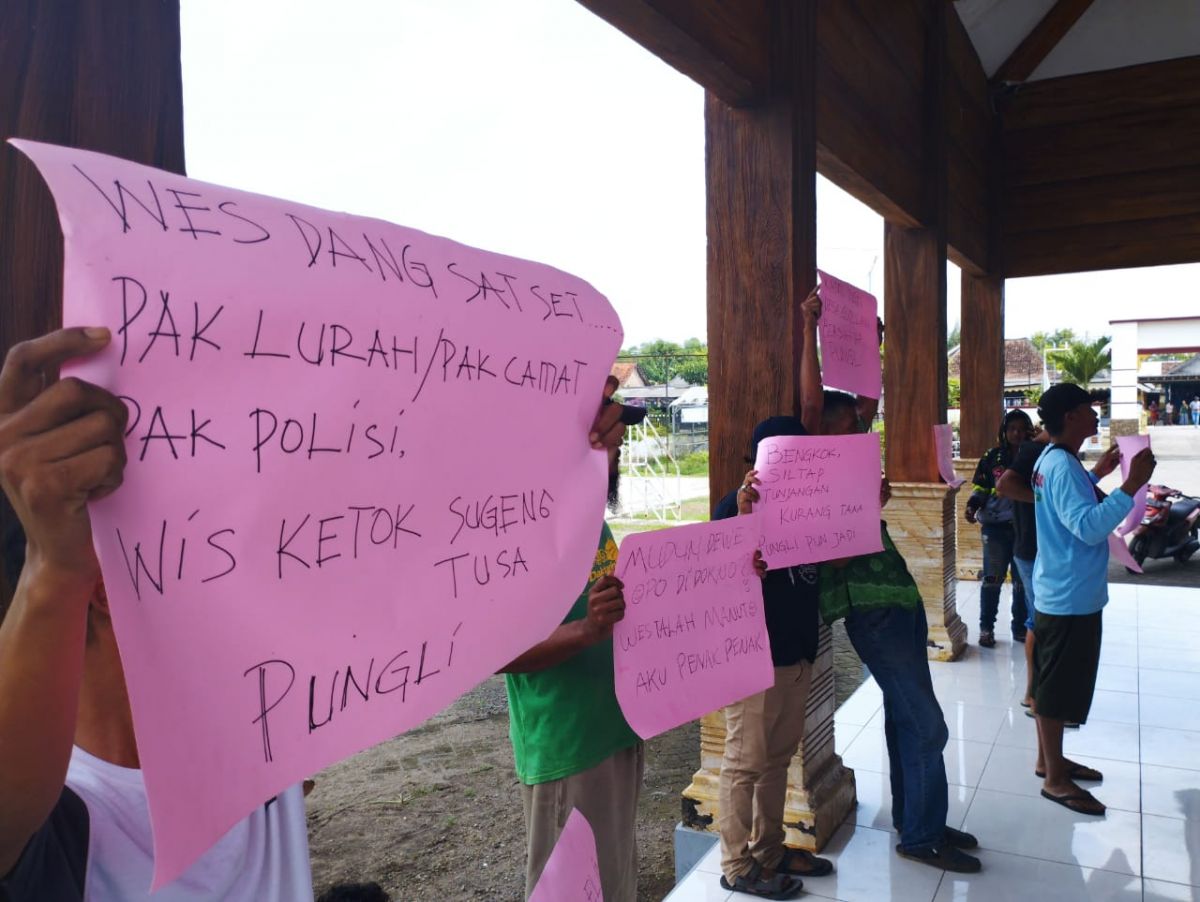 WES DANG SAT SET......
PAK LURAH/PAK CAMAT
PAK POLISI,
WIS KETOK SUGENG
TUSA
PUNGLI
MUDUN DEWE
OPO DIDOKNO?
WESTALAH MANUTO
AKU PENAK PENAK
BENGKOK,
SILTAP
TUNJANGAN
KURANG TAAA
PUNGLI PUN JADI
PUNGLI